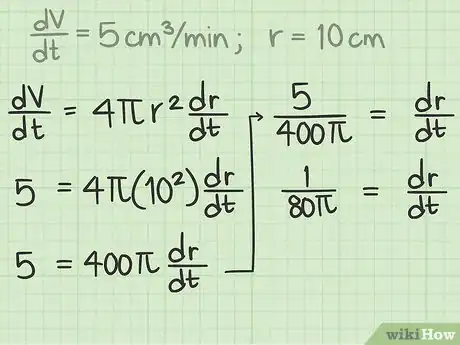 dV/dt = 5 cm³/min; r = 10 cm
dV/dt = 4πr² dr/dt
5 = 4π(10²) dr/dt
5 = 400π dr/dt
5/400π = dr/dt
1/80π = dr/dt
wikiHow